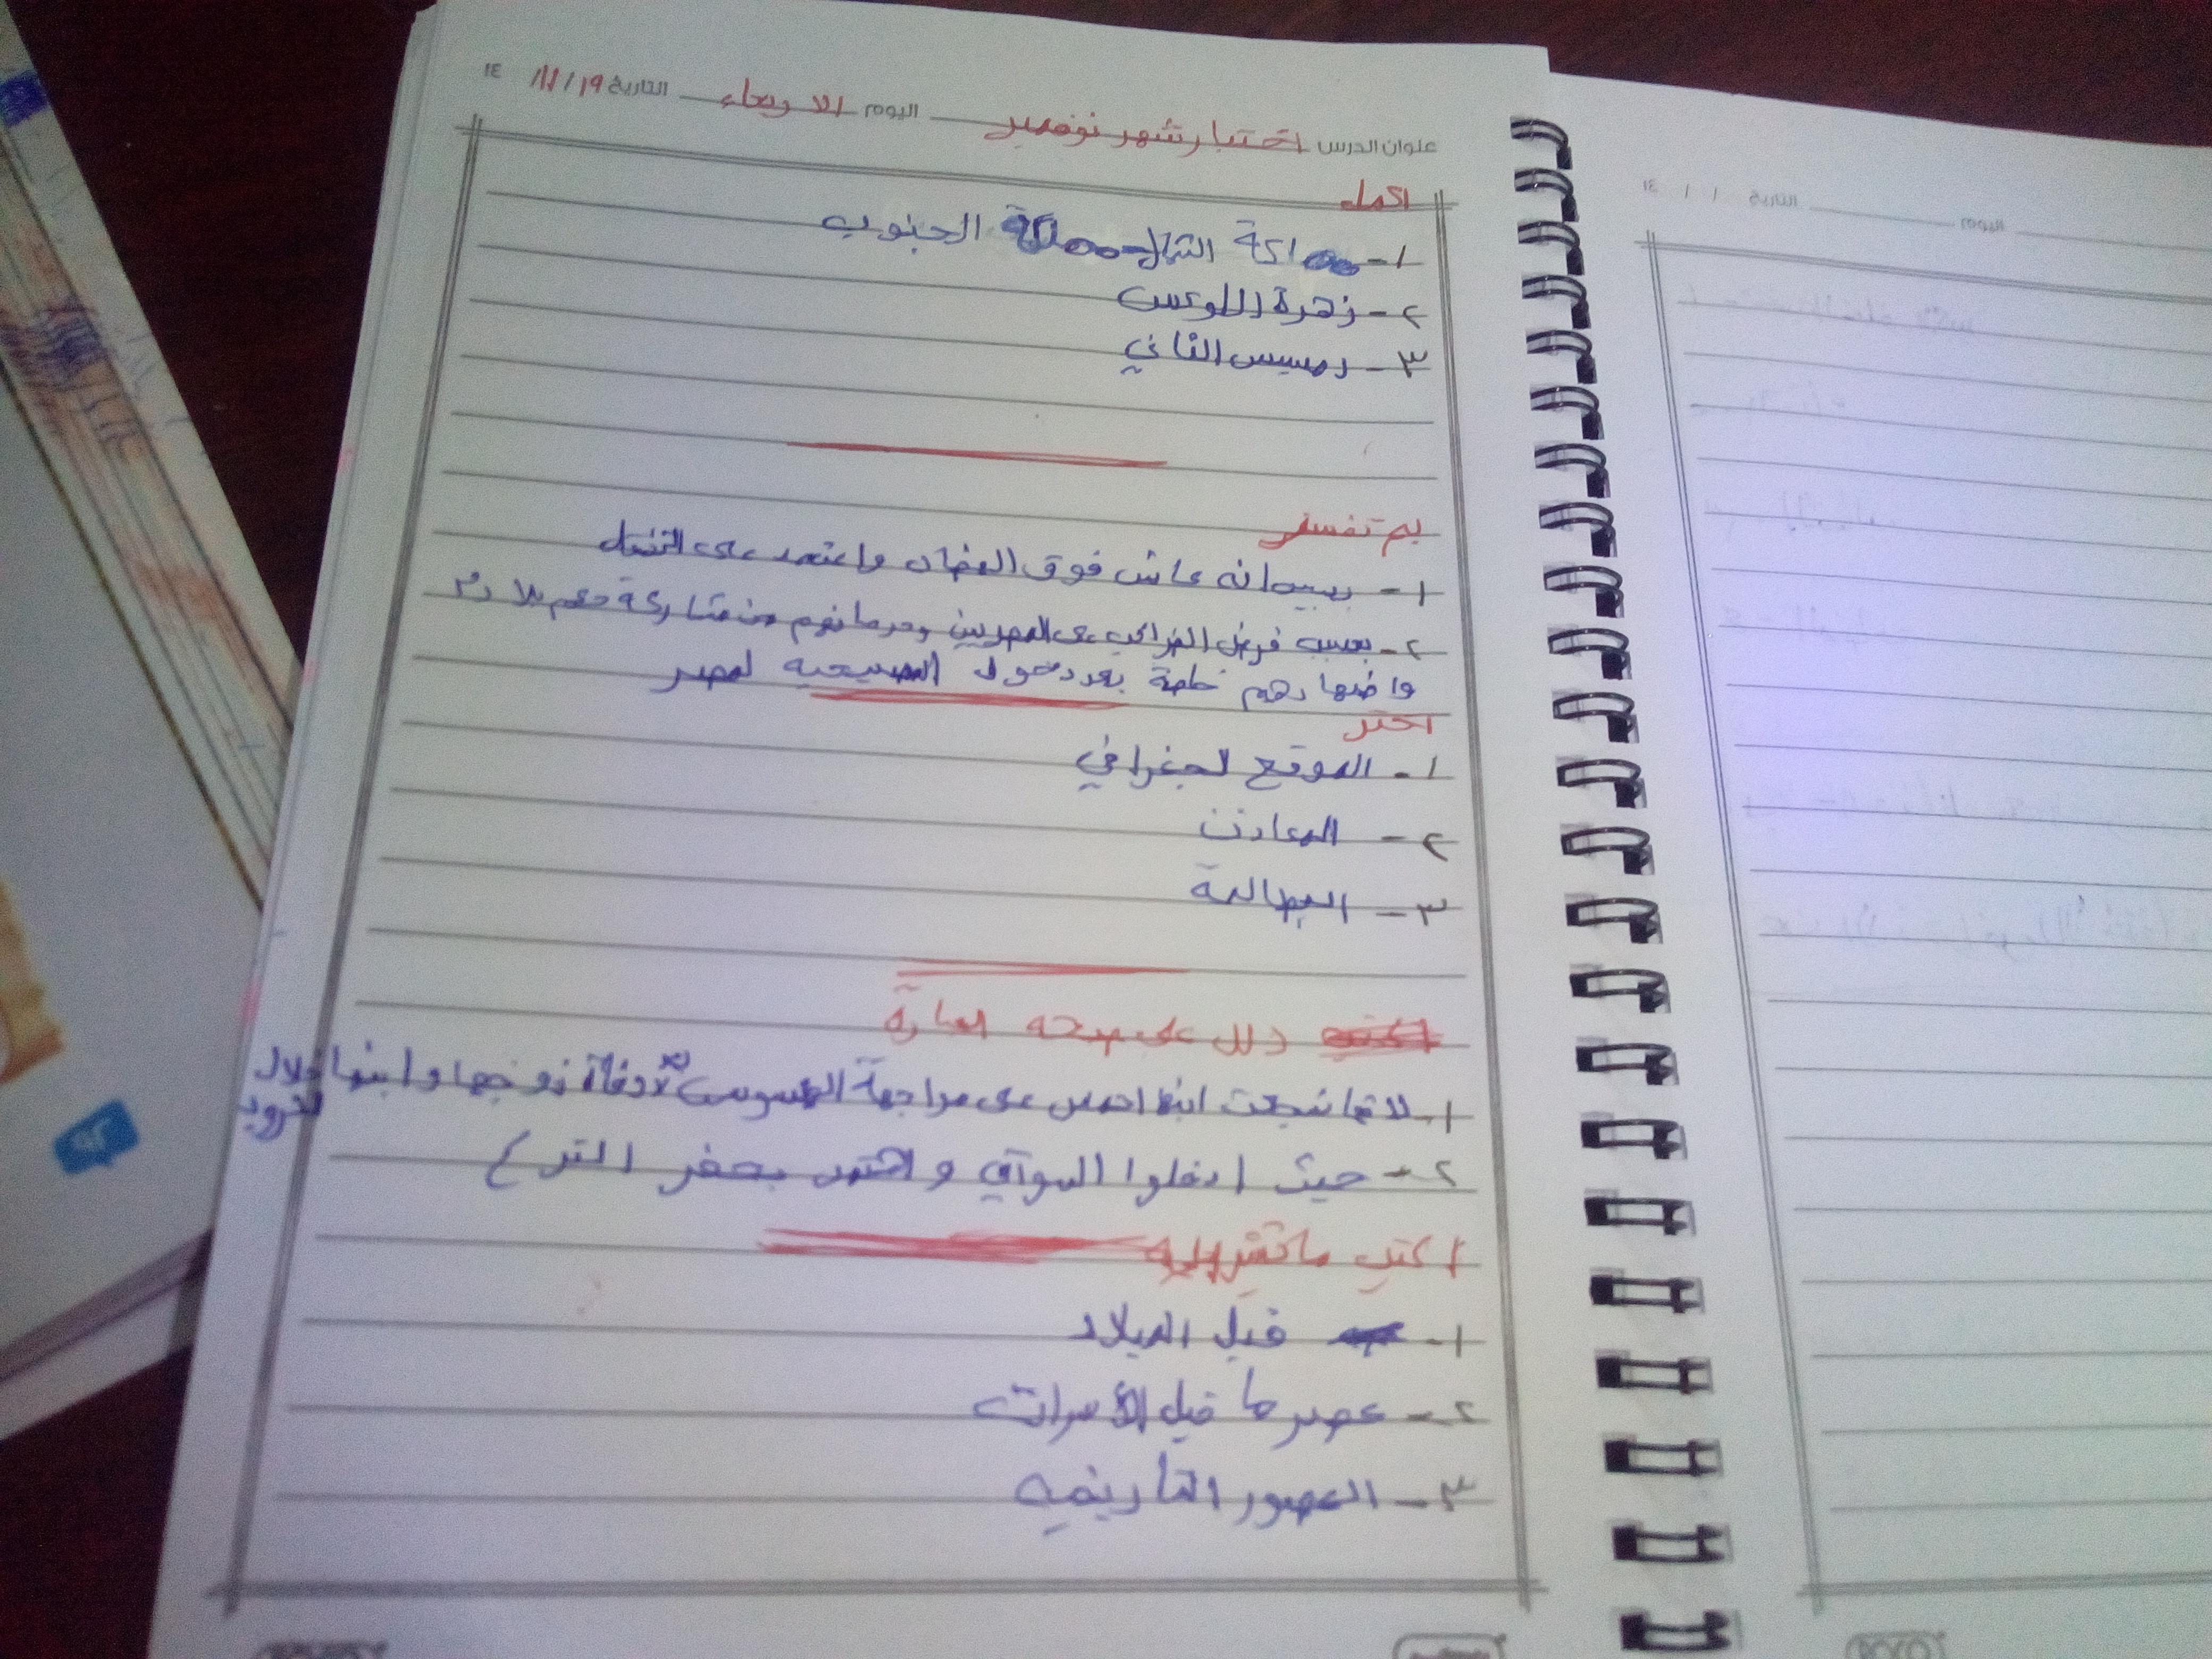 عنوان الدرس اختبار شهر نوفمبر اليوم الاربعاء التاريخ ١٩ / ١١ / ١٤
اكمل
١- مملكة الشمال - مملكة الجنوب
٢- زهرة اللوتس
٣- رمسيس الثاني
بم تفسر
١- بسبب انه عاش فوق الهضاب واعتمد على التنقل
٢- بسبب فرض الضرائب على المصريين وحرمانهم من مشاركة حكم بلادهم
واضهادهم خاصة بعد دخول المسيحيه لمصر
اختر
١- الموقع الجغرافي
٢- المعادن
٣- البطالمة
دلل على صحه العبارة
١- لانها شجعت ابنها احمس على مواجهة الهكسوس بعد وفاة زوجها وابنها خلال
الحروب
٢- حيث ادخلوا السواقي واهتمت بحفر الترع
اكتب ما تشير إليه
١- قبل الميلاد
٢- عصر ما قبل الأسرات
٣- العصور التأريخيه
التاريخ / / ١٤
اليوم
ROCO